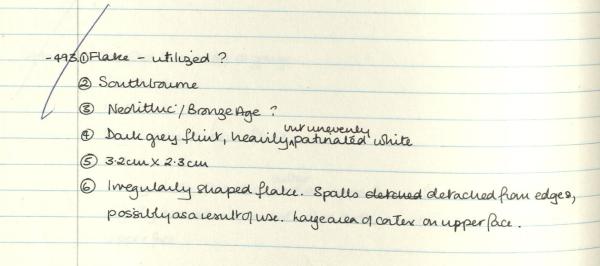 -493. ① Flake - utilized ?
② Southbourne
③ Neolithic / Bronze Age ?
④ Dark grey flint, heavily but unevenly patinated white
⑤ 3.2cm x 2.3cm
⑥ Irregularly shaped flake. Spalls detached from edges,
possibly as a result of use. Large area of cortex on upper face.